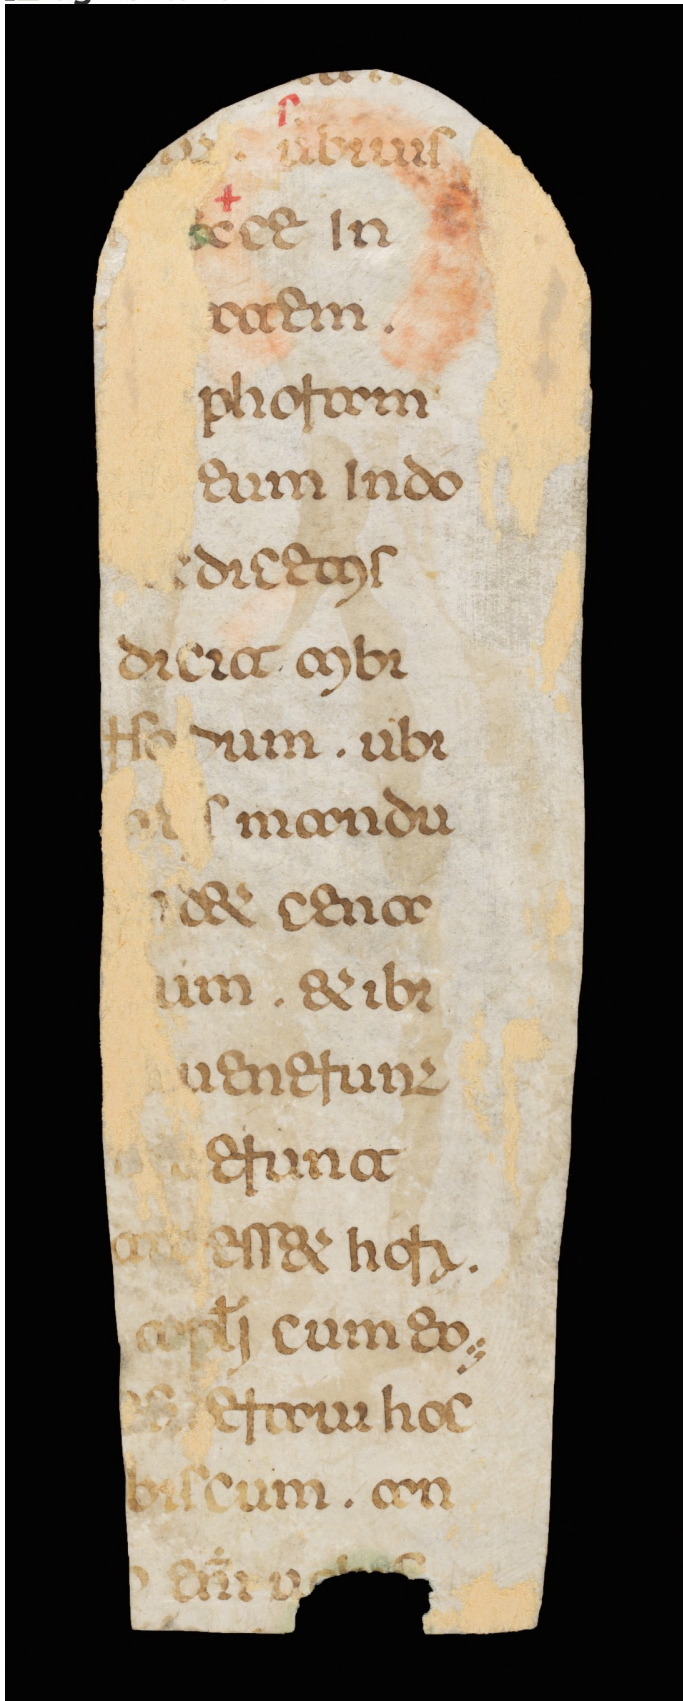 ubiuis
ecce In
tatem .
phoram
eum Indo
dicetis
dicit tibi
rsorium . ubi
is mandu
ndet cena
um . et ibi
uenerunt
erunt
esset hora.
apłi cum eo
eraui hoc
biscum . an
o eni uobis